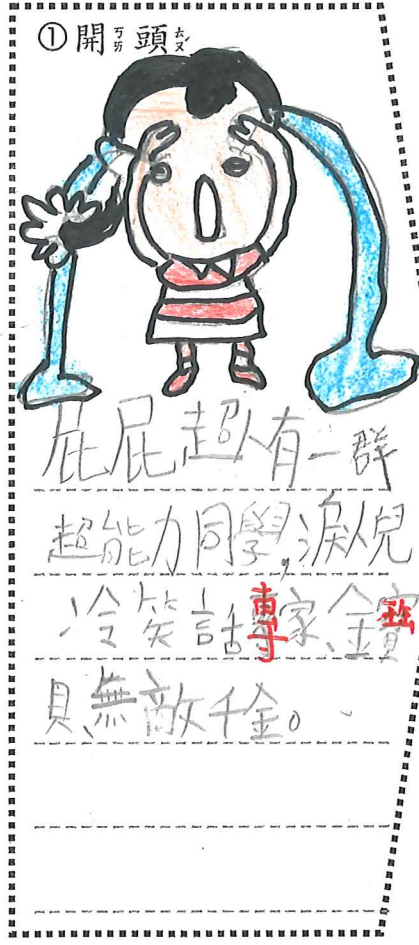 ①開ㄎㄞ頭ㄊㄡˊ
屁屁超人有一群
超能力同學,淚人兒
冷笑話專家、金寶
貝、無敵千金。